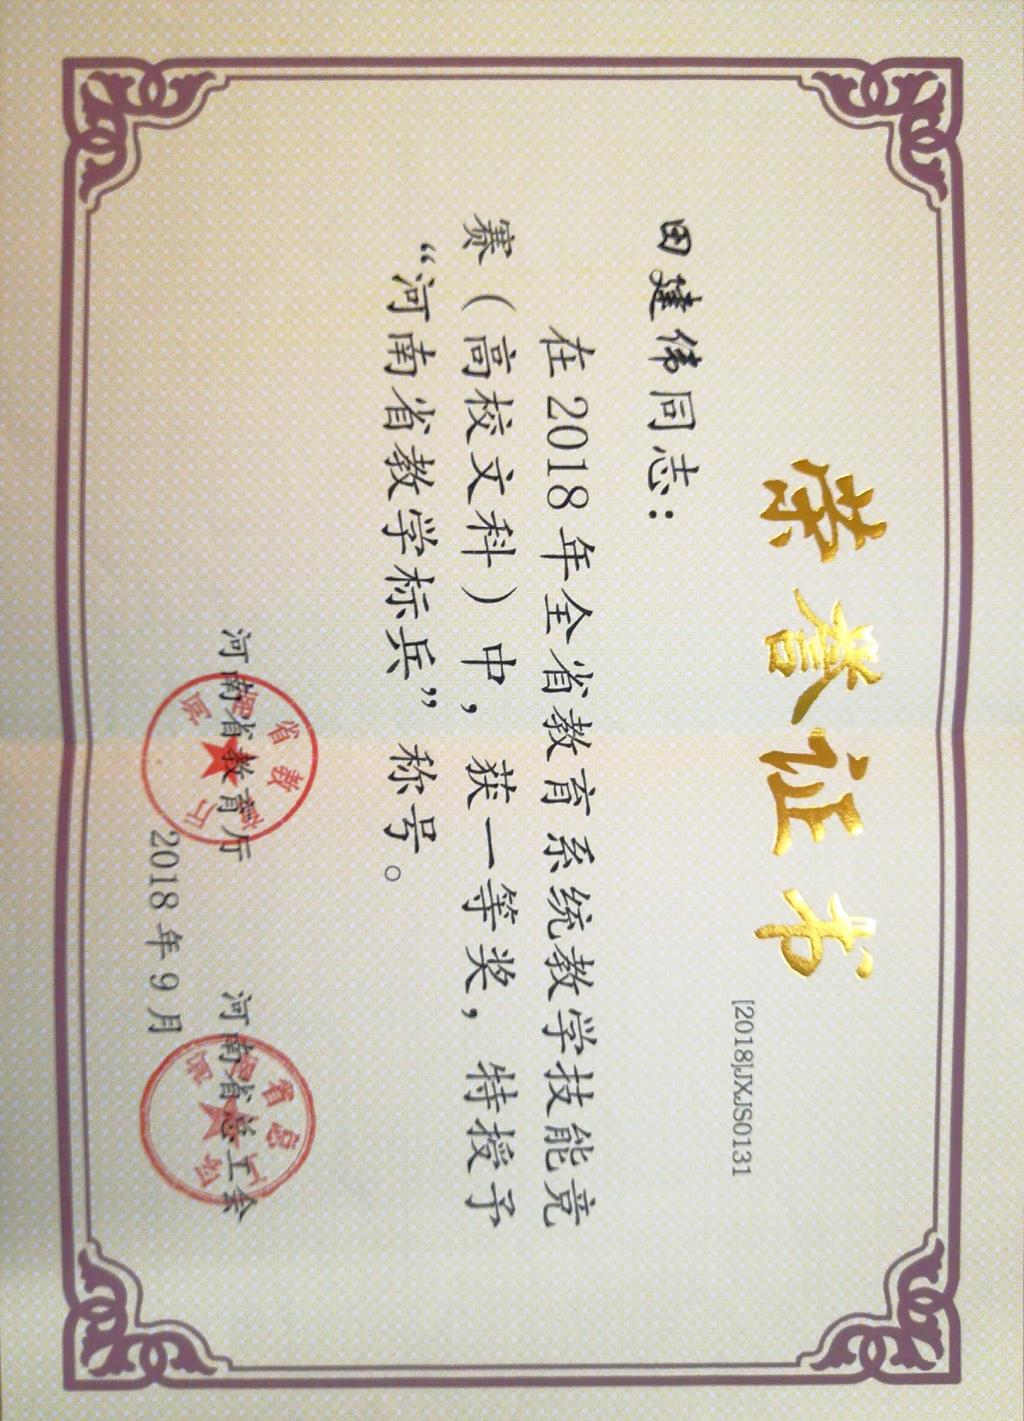 荣誉证书
[2018]JXJS0131
田建伟同志：
在2018年全省教育系统教学技能竞
赛（高校文科）中，获一等奖，特授予
“河南省教学标兵”称号。
河南省教育厅 河南省总工会
2018年9月